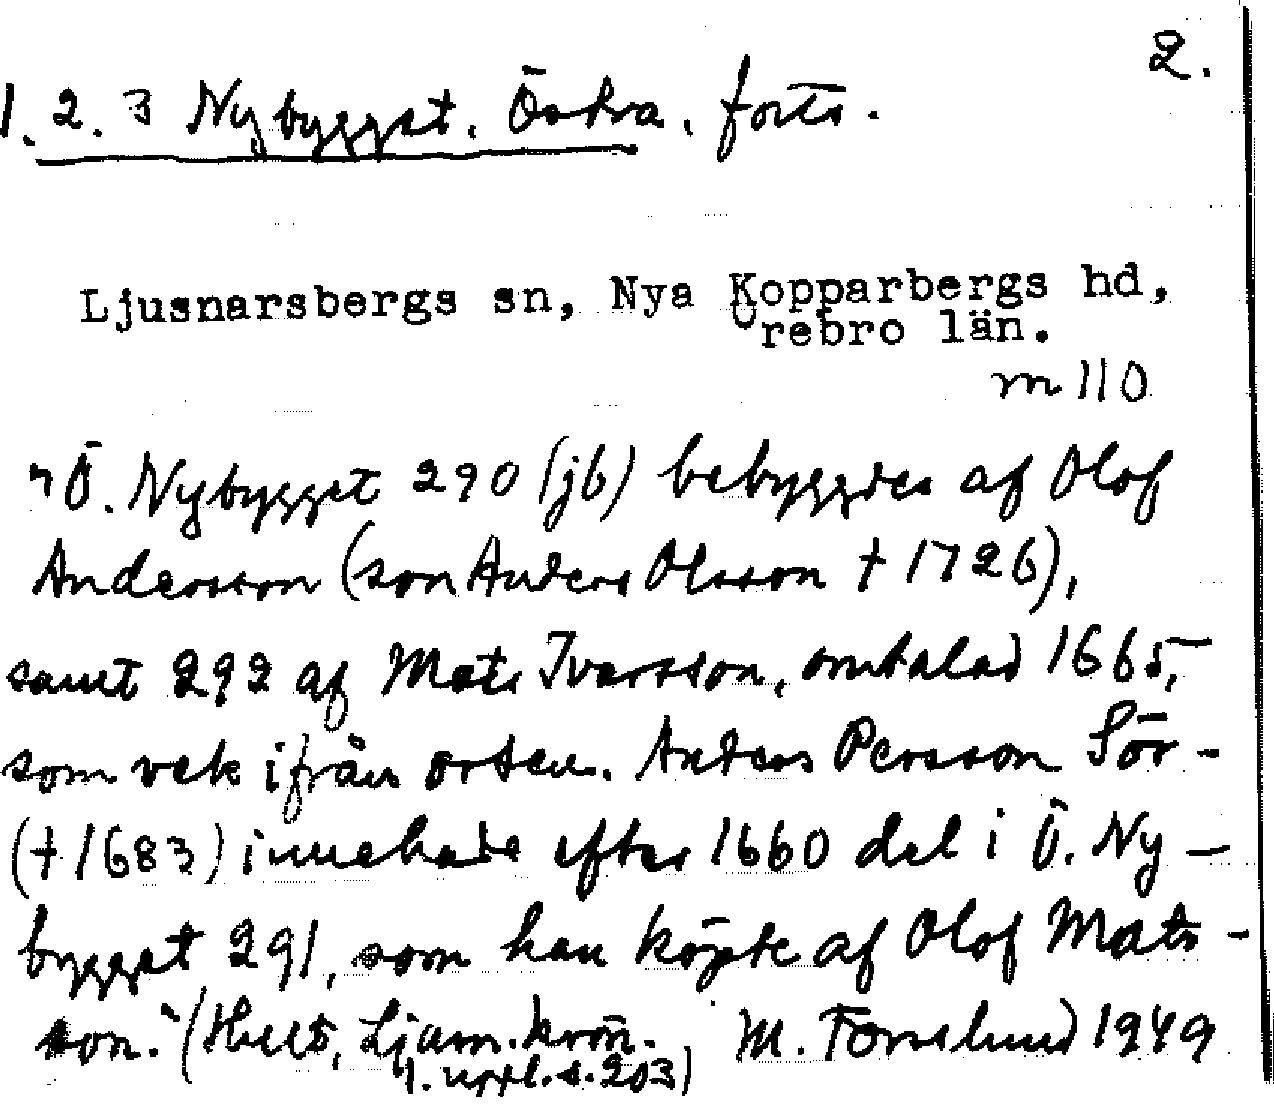 2.
1. 2. 3 Nybygget. Östra, forts.
Ljusnarsbergs sn, Nya Kopparbergs hd,
Örebro län.
m 110
"Ö. Nybygget 290 (jb) bebyggdes af Olof
Andersson (son Anders Olsson † 1726),
samt 292 af Mats Ivarsson, omtalad 1665,
som vek ifrån orten. Anders Persson Sör-
(† 1683) innehade efter 1660 del i Ö. Ny-
bygget 291, som han köpte af Olof Mats-
son." (Hult, Ljusn. krön.
1. uppl. s. 203) M. Forslund 1949